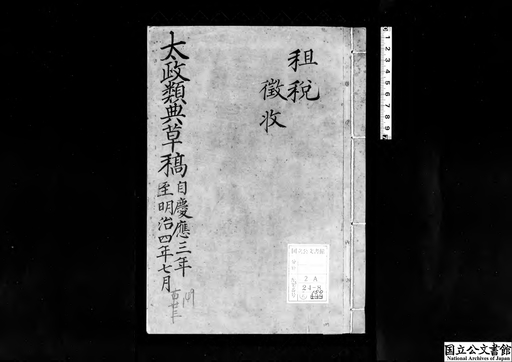 租税
徴收
太政類典草稿
自慶應三年
至明治四年七月
国立公文書館
2 A
24-8
1 2 3 4 5 6 7 8 9
国立公文書館
National Archives of Japan